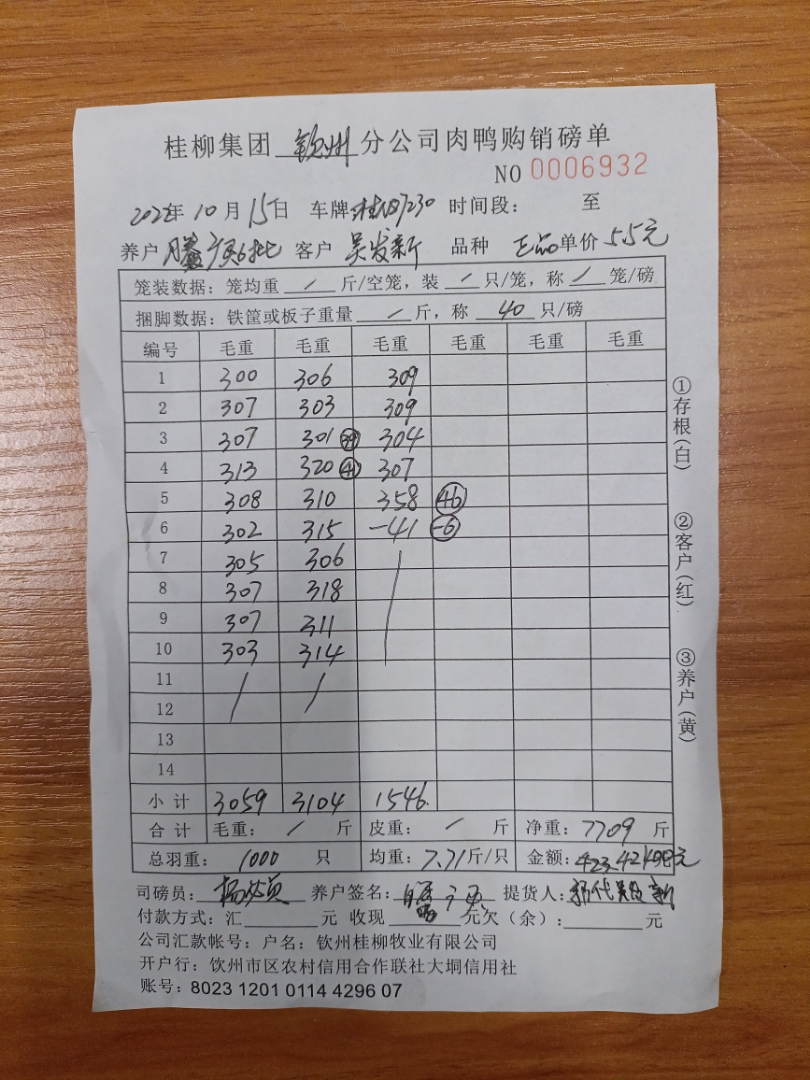 桂柳集团 钦州 分公司肉鸭购销磅单
NO 0006932
2022年 10月 15日 车牌 时间段： 至
养户 客户 吴发新 品种 正品 单价 5.5元
笼装数据：笼均重 / 斤/空笼，装 / 只/笼，称 / 笼/磅
捆脚数据：铁筐或板子重量 / 斤，称 40 只/磅
编号 毛重 毛重 毛重 毛重 毛重 毛重
1 300 306 309
2 307 303 309
3 307 301 39 304
4 313 320 41 307
5 308 310 358 46
6 302 315 -41 -6
7 305 306
8 307 318
9 307 311
10 303 314
11
12
13
14
小计 3059 3104 1546
合计 毛重： / 斤 皮重： / 斤 净重：7709 斤
总羽重： 1000 只 均重：7.71斤/只 金额： 元
司磅员： 养户签名： 提货人：
付款方式：汇 元 收现 元欠（余）： 元
公司汇款帐号：户名：钦州桂柳牧业有限公司
开户行：钦州市区农村信用合作联社大垌信用社
账号：8023 1201 0114 4296 07
①存根（白）
②客户（红）
③养户（黄）